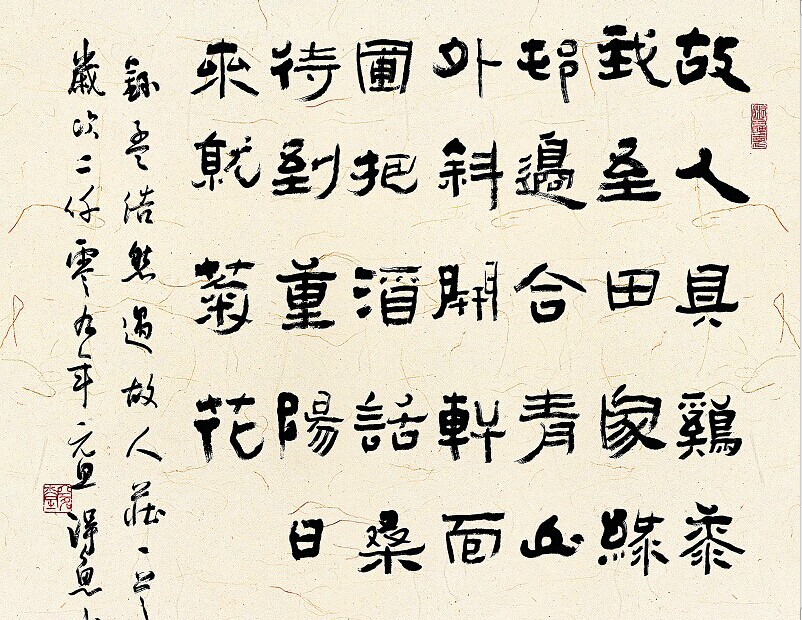 故人具鷄黍
我至田家綠
邨邊合青山
外斜開軒面
圃把酒話桑
待到重陽日
來就菊花
錄孟浩然過故人莊一首
歲次二仟零九年元旦得魚